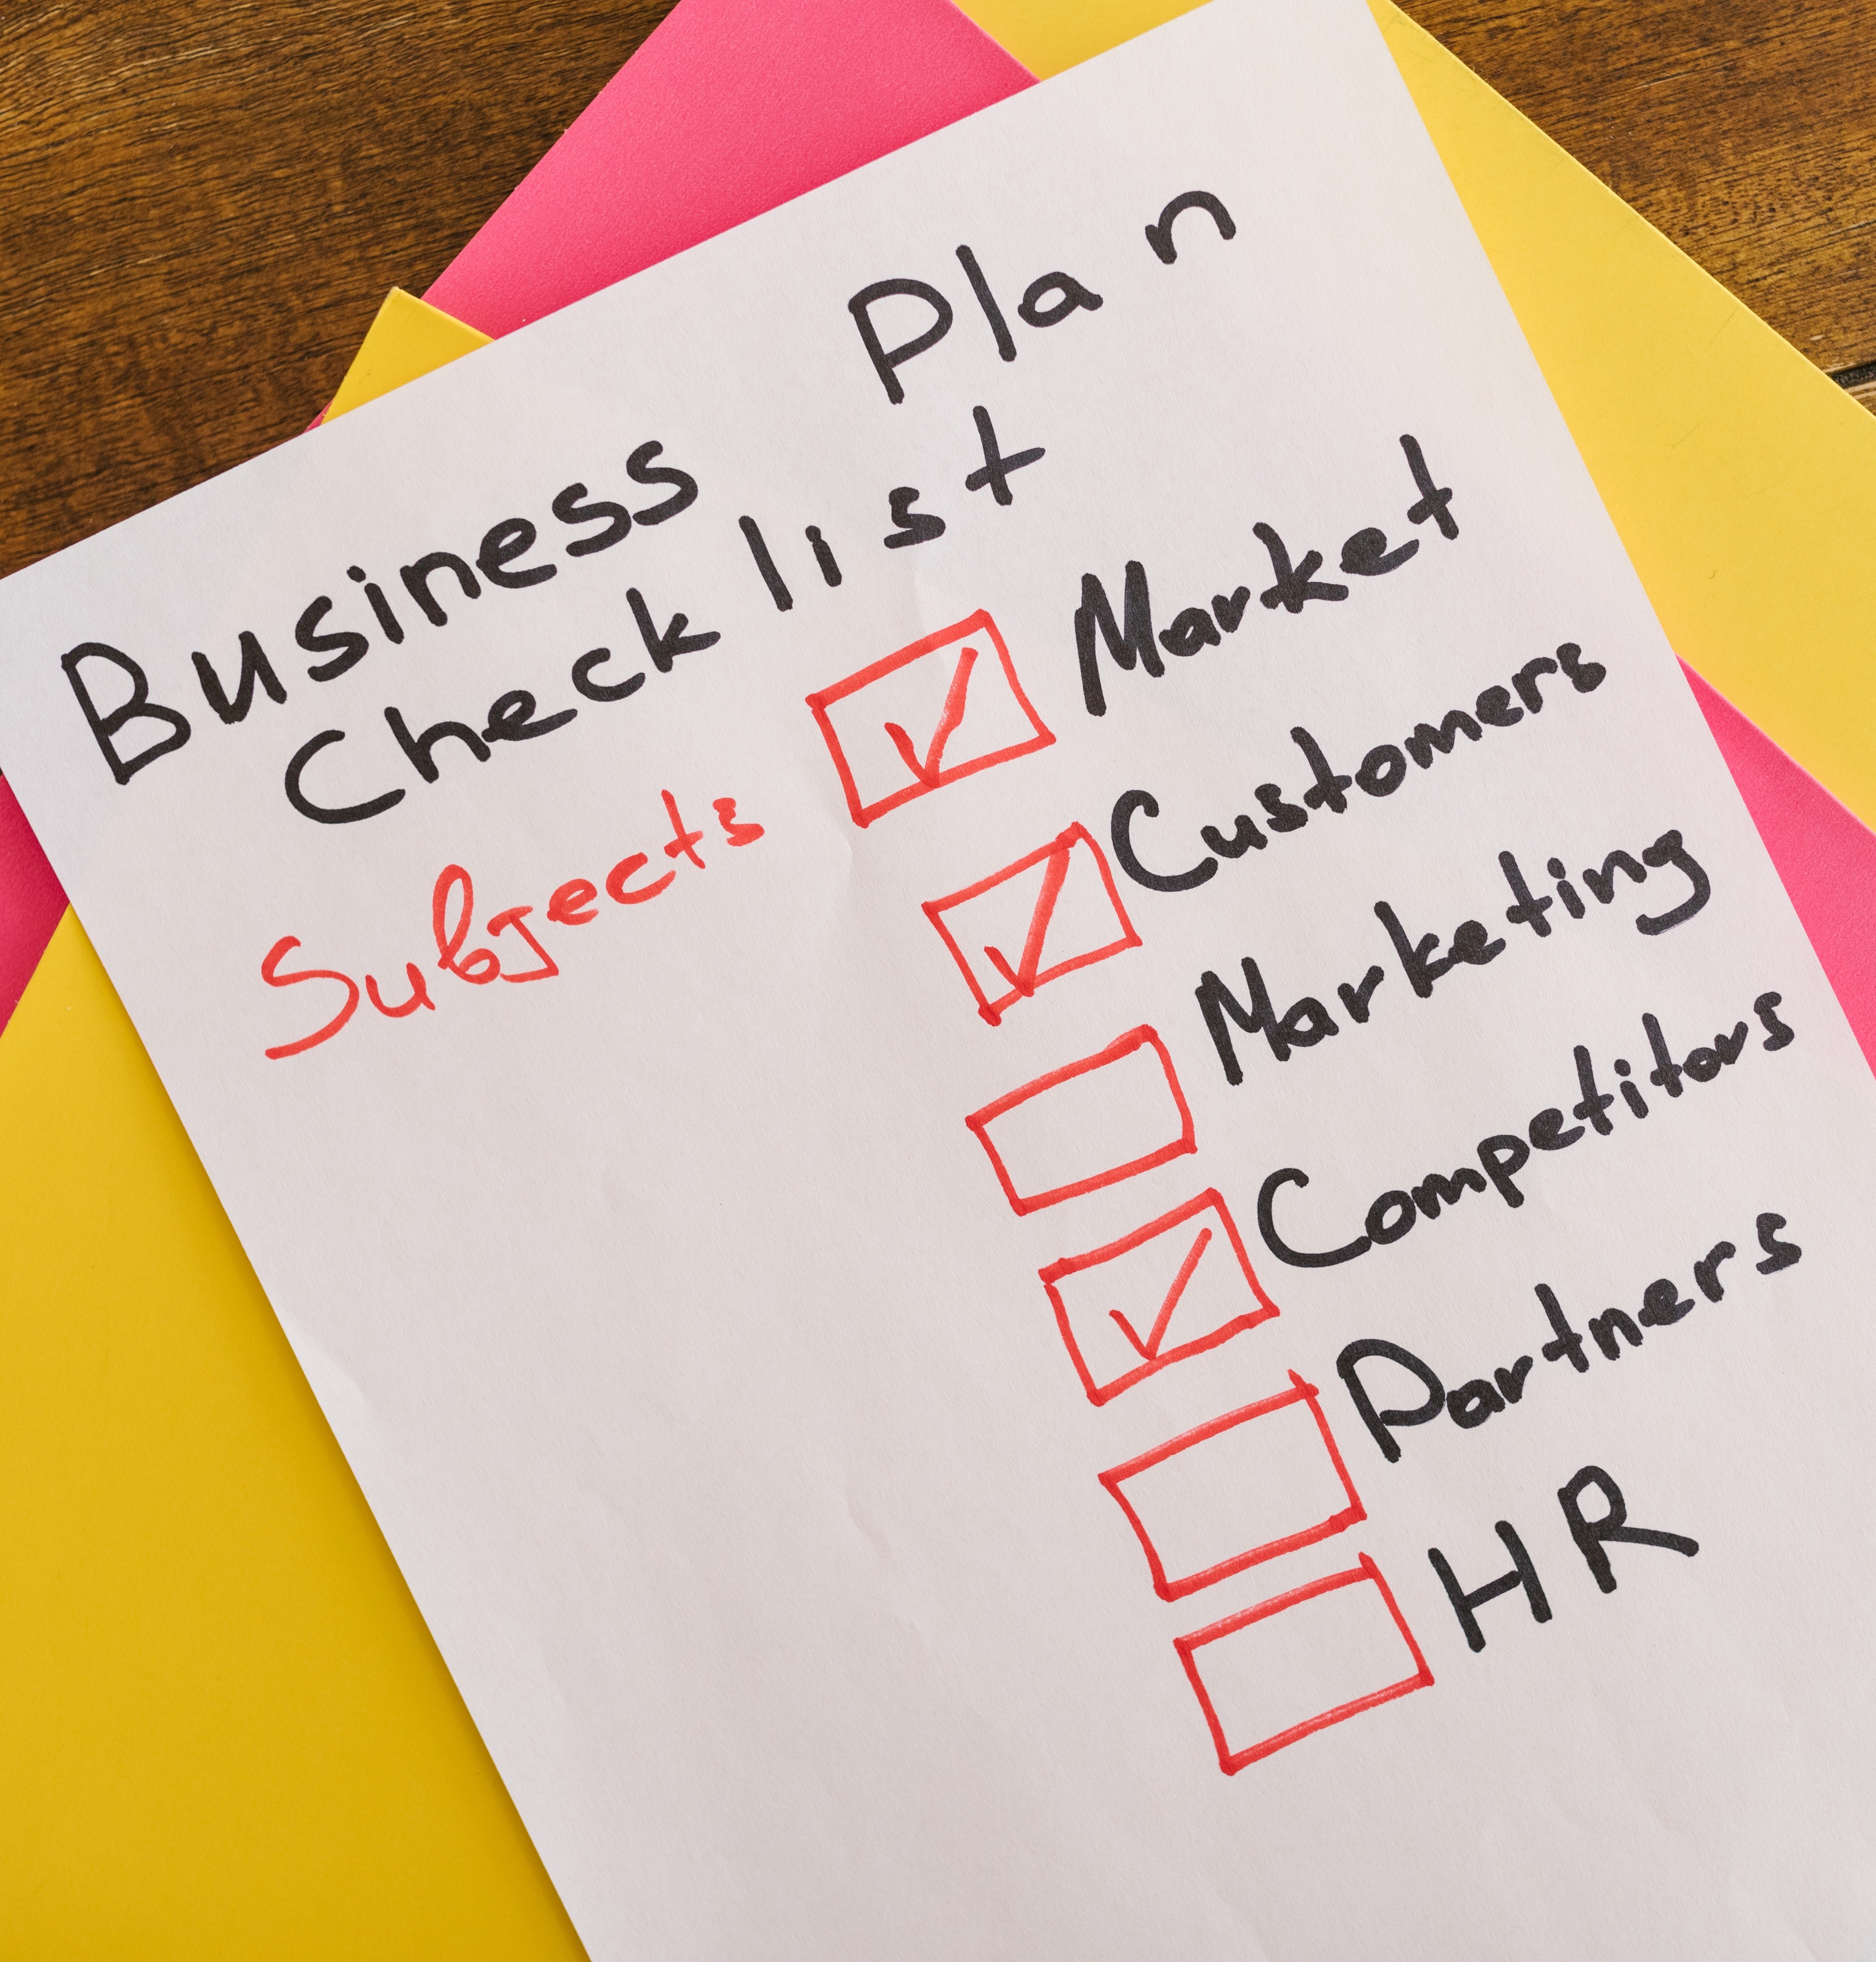 Business Plan
Check list
Subjects
Market
Customers
Marketing
Competitors
Partners
HR